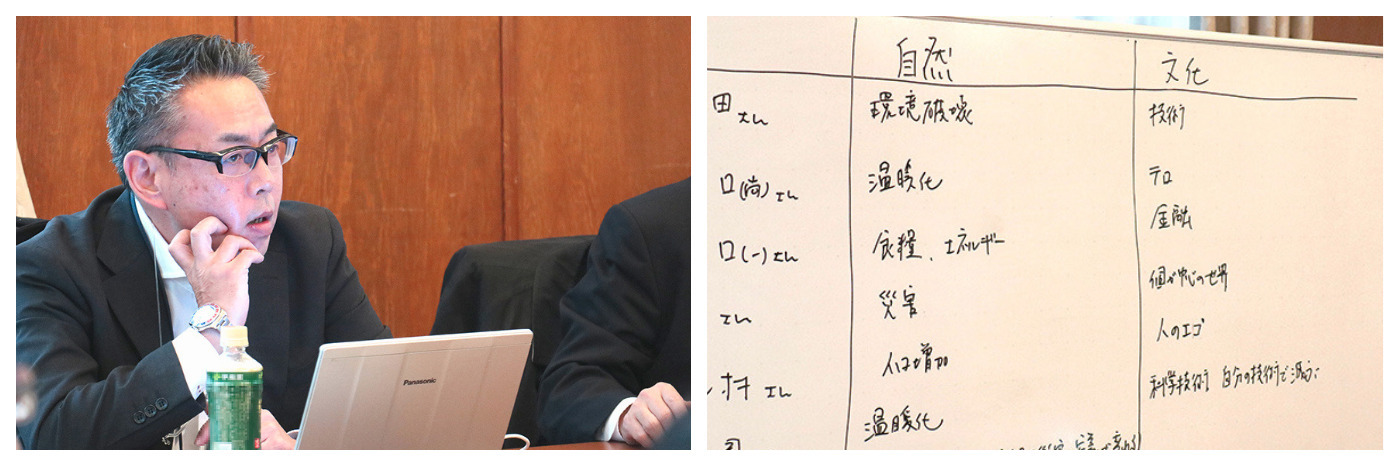 Panasonic
自然 文化
田さん 環境破壊 技術
口(尚)さん 温暖化 テロ
金融
口(一)さん 食糧、エネルギー
個が中心の世界
さん 災害
人のエゴ
村さん 人口増加
科学技術 自分の技術で
温暖化